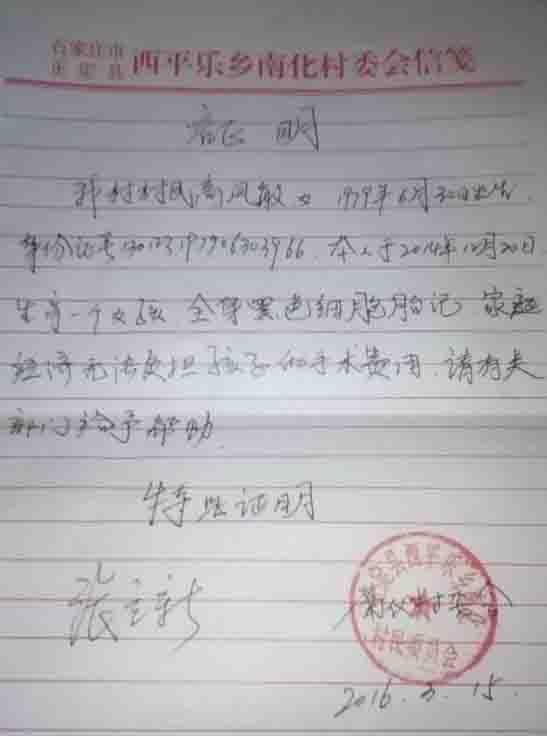 石家庄市
正定县 西平乐乡南化村委会信笺
证 明
我村村民高凤敏 女 1979年6月30日出生.
身份证号130123197906303966. 本人于2014年10月20日
生育一个女孩 全身黑色细胞胎记 家庭
经济无法负担孩子的手术费用.请有关
部门给予帮助
特此证明
张立新
南化村委会
村民委员会
2016.3.15.